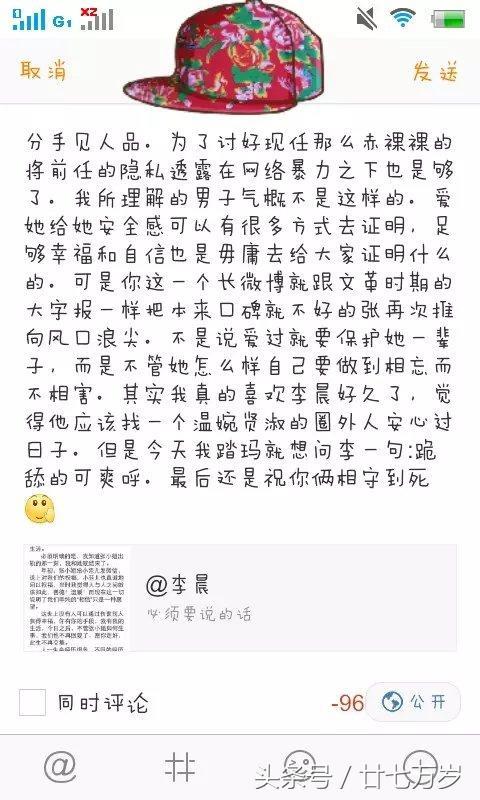 G1
取消
发送
分手见人品。为了讨好现任那么赤裸裸的
将前任的隐私透露在网络暴力之下也是够
了。我所理解的男子气概不是这样的。爱
她给她安全感可以有很多方式去证明，足
够幸福和自信也是毋庸去给大家证明什么
的。可是你这一个长微博就跟文革时期的
大字报一样把本来口碑就不好的张再次推
向风口浪尖。不是说爱过就要保护她一辈
子，而是不管她怎么样自己要做到相忘而
不相害。其实我真的喜欢李晨好久了，觉
得他应该找一个温婉贤淑的圈外人安心过
日子。但是今天我踏玛就想问李一句:跪
舔的可爽呼。最后还是祝你俩相守到死
@李晨
必须要说的话
同时评论
-96
公开
头条号／廿七万岁